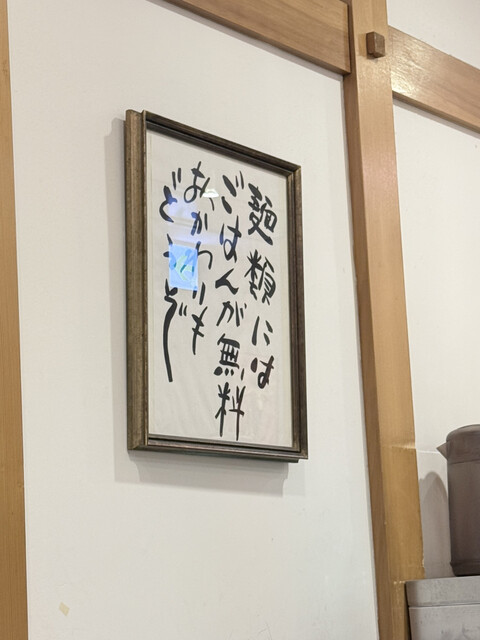 麺類には
ごはんが無料
おかわりも
どうぞ